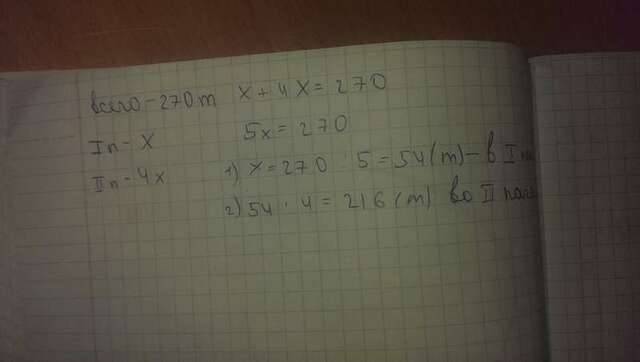 всего - 270 т
I п - X
II п - 4x
X + 4X = 270
5x = 270
1) x = 270 : 5 = 54 (т) - в I
2) 54 · 4 = 216 (т) во II